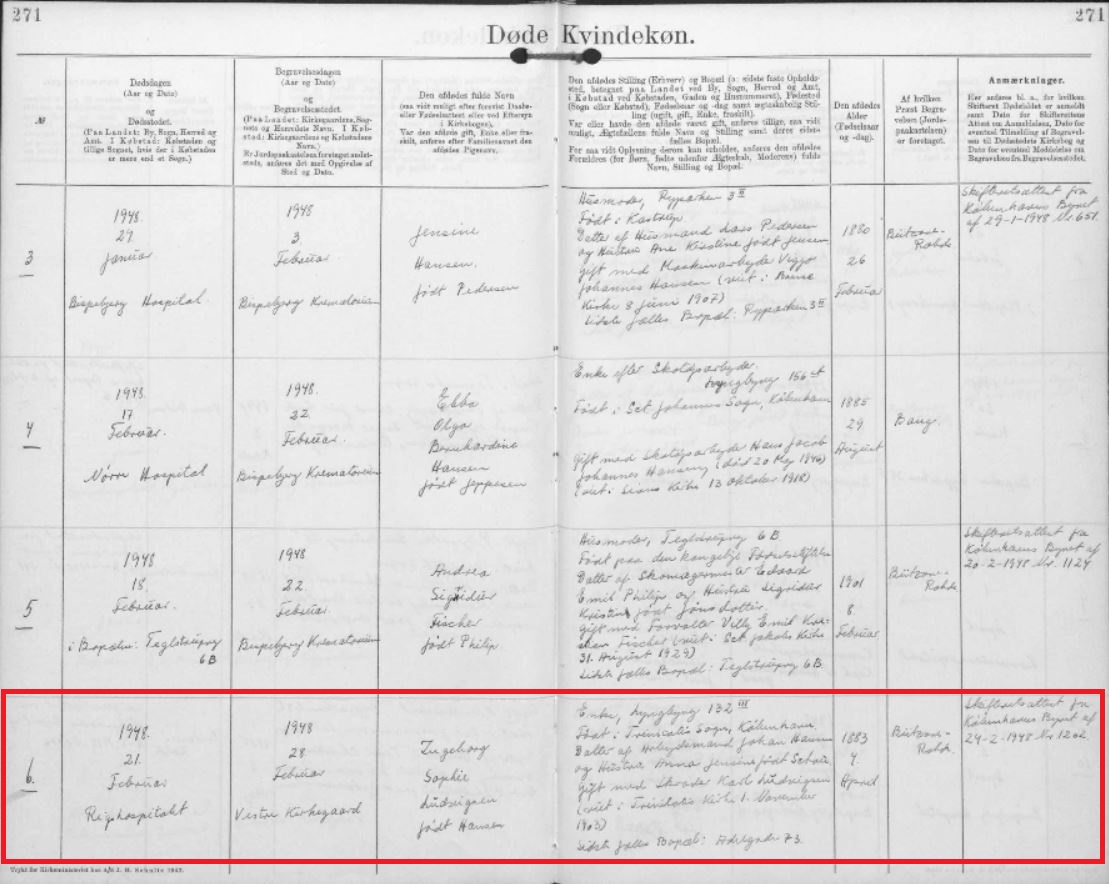 271
271
Døde Kvindekøn.
№
Dødsdagen
(Aar og Dato)
og
Dødsstedet.
(Paa Landet: By, Sogn, Herred og
Amt. I Købstad: Købstaden og
tillige Sognet, hvis der i Købstaden
er mere end et Sogn.)
Begravelsesdagen
(Aar og Dato)
og
Begravelsesstedet.
(Paa Landet: Kirkegaardens, Sog-
nets og Herredets Navn. I Køb-
stad: Kirkegaardens og Købstadens
Navn.)
Er Jordpaakastelsen foretaget andet-
steds, anføres det med Opgivelse af
Sted og Dato.
Den afdødes fulde Navn
(saa vidt muligt efter forevist Daabs-
eller Fødselsattest eller ved Eftersyn
i Kirkebogen).
Var den afdøde gift, Enke eller fra-
skilt, anføres efter Familienavnet den
afdødes Pigenavn.
Den afdødes Stilling (Erhverv) og Bopæl (o: sidste faste Opholds-
sted, betegnet paa Landet ved By, Sogn, Herred og Amt,
i Købstad ved Købstaden, Gaden og Husnummeret), Fødested
(Sogn eller Købstad), Fødselsaar og -dag samt ægteskabelig Stil-
ling (ugift, gift, Enke, fraskilt).
Var eller havde den afdøde været gift, anføres tillige, saa vidt
muligt, Ægtefællens fulde Navn og Stilling samt deres sidste
fælles Bopæl.
For saa vidt Oplysning derom kan erholdes, anføres den afdødes
Forældres (for Børn, fødte udenfor Ægteskab, Moderens) fulde
Navn, Stilling og Bopæl.
Den afdødes
Alder
(Fødselsaar
og -dag).
Af hvilken
Præst Begra-
velsen (Jords-
paakastelsen)
er foretaget.
Anmærkninger.
Her anføres bl. a., for hvilken
Skifteret Dødsfaldet er anmeldt
samt Dato for Skifterettens
Attest om Anmeldelsen, Dato for
eventuel Tilmelding af Begravel-
sen til Dødsstedets Kirkebog og
Dato for eventuel Meddelelse om
Begravelsen fra Begravelsesstedet.
3
1948.
29.
Januar
Bispebjerg Hospital.
1948
3.
Februar
Bispebjerg Krematorium
Jensine
Hansen.
født Pedersen
Husmoder, Ryparken 3 II
Født i Kastrup
Datter af Husmand Lars Pedersen
og Hustru Ane Kirstine født Jensen
Gift med Maskinarbejder Viggo
Johannes Hansen (viet i
Kirke 8 Juni 1907)
Sidste fælles Bopæl: Ryparken 3 II
1880
26
Februar
Bützow-
Rohde.
Skifteretsattest fra
Københavns Byret
af 29-1-1948 Nr. 651.
4
1948.
17
Februar.
Nørre Hospital
1948.
22.
Februar.
Bispebjerg Krematorium
Ebba
Olga
Bernhardine
Hansen
født Jeppesen
Enke efter Skotøjsarbejder.
Lyngbyvej 156
Født i Sct Johannes Sogn, København
Gift med Skotøjsarbejder Hans Jacob
Johannes Hansen (død 20 Maj 1946)
(viet i Sions Kirke 13 Oktober 1918)
1885
29
August
Bang.
5
1948
18.
Februar.
i Bopælen: Teglstrupvej
6B
1948
22.
Februar
Bispebjerg Krematorium
Andrea
Sigridur
Fischer
født Philip
Husmoder, Teglstrupvej 6 B.
Født paa den kongelige Fødselsstiftelse
Datter af Skomagermester Edvard
Emil Philip og Hustru Sigridur
Kristin født Jóns dottir.
Gift med Forvalter Villy Emil Kri-
stian Fischer (viet i Sct. Jakobs Kirke
31. August 1929)
Sidste fælles Bopæl: Teglstrupvej 6B.
1901
8
Februar
Bützow-
Rohde.
Skifteretsattest fra
Københavns Byret af
20-2-1948 Nr. 1124
6.
1948.
21.
Februar
Rigshospitalet
1948
28
Februar
Vestre Kirkegaard
Ingeborg
Sophie
Ludvigsen
født Hansen
Enke, Lyngbyvej 132 III
Født i Trinitatis Sogn, København,
Datter af Arbejdsmand Johan Hansen
og Hustru Anna Jensine født
Gift med Karl Ludvigsen
(viet i Trinitatis Kirke 1. November
1903)
Sidste fælles Bopæl: Adelgade 73.
1883
9.
April
Bützow-
Rohde.
Skifteretsattest fra
Københavns Byret af
24-2-1948 Nr. 1202.
Trykt for Kirkeministeriet hos A/S J. H. Schultz 1947.